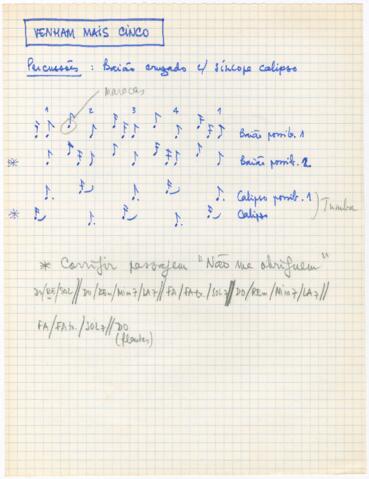 VENHAM MAIS CINCO
Percussões : Baião cruzado c/ síncope calipso
maracas
1 2 3 4 1
Baião possib. 1
* Baião possib. 2
Calipso possib. 1
* Calipso
Tumba
* Corrigir passagem "Não me obriguem"
DO/RE/SOL7// DO/REm/MIm7/LA7// FA/FA#/SOL7// DO/REm/MIm7/LA7//
FA/FA#/SOL7// DO
(flautas)